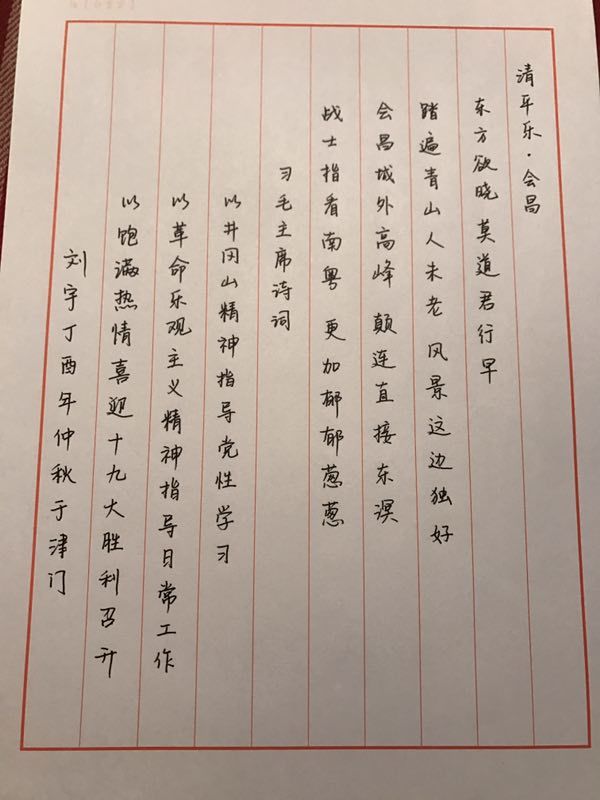 清平乐·会昌
东方欲晓 莫道君行早
踏遍青山人未老 风景这边独好
会昌城外高峰 颠连直接东溟
战士指看南粤 更加郁郁葱葱
习毛主席诗词
以井冈山精神指导党性学习
以革命乐观主义精神指导日常工作
以饱满热情喜迎十九大胜利召开
刘宇丁酉年仲秋于津门